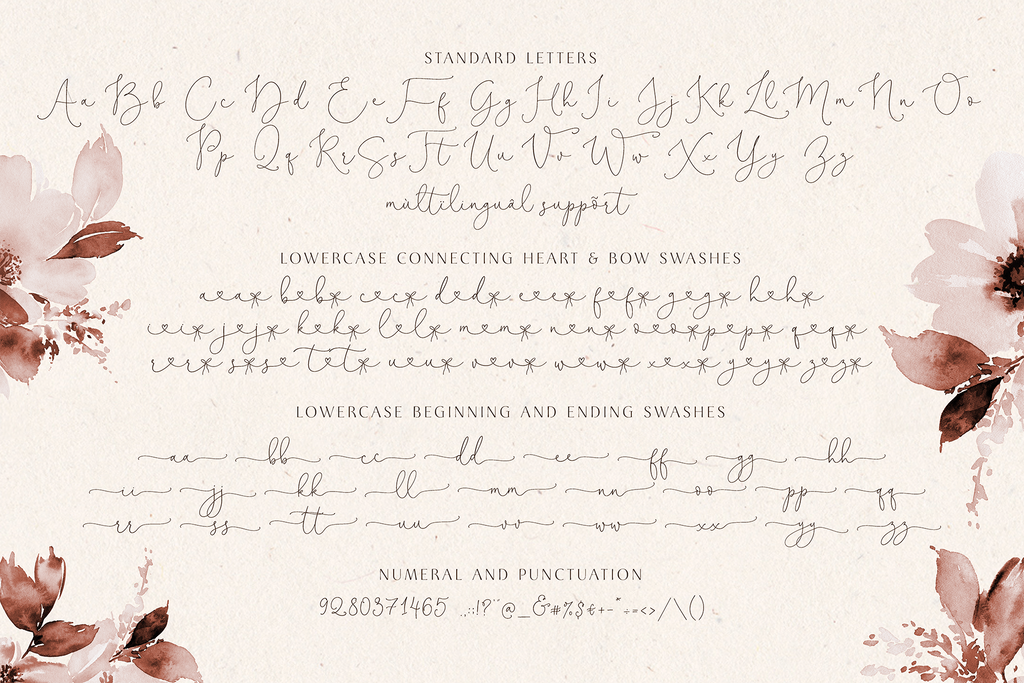 STANDARD LETTERS
Aa Bb Cc Dd Ee Ff Gg Hh Ii Jj Kk Ll Mm Nn Oo
Pp Qq Rr Ss Tt Uu Vv Ww Xx Yy Zz
mùltilinguâl suppõrt
LOWERCASE CONNECTING HEART & BOW SWASHES
a a b b c c d d e e f f g g h h
i i j j k k l l m m n n o o p p q q
r r s s t t u u v v w w x x y y z z
LOWERCASE BEGINNING AND ENDING SWASHES
aa bb cc dd ee ff gg hh
ii jj kk ll mm nn oo pp qq
rr ss tt uu vv ww xx yy zz
NUMERAL AND PUNCTUATION
9280371465 .,:;!?"@_&#%$€+-*÷=<>/\()